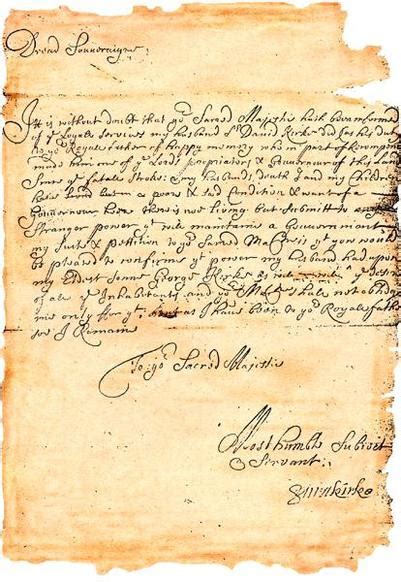 Dread Souvraigne:
It is without doubt that yr Sacred Majestie hath been informed
of ye Loyale services my husband Sr David Kirke did for his
to yr Royale father of happy memory who in part of
made him one of ye Lords proprietors & Gouvernour of this Land
Since ye fatale Stroke of my husbands death I and my Children
have lived but in a poore & sad Condition & want of a
Gouvernour here there is noe living but submitt to
Stranger power yt will maintaine a Gouvernment
my Suite & petition to yr Sacred Matie is yt you would
be pleased to confirme yt power my husband had upon
my Eldest Sonne George Kirke as with ye desire
of all ye Inhabitants and yr Matie shall not oblidge
me only for yt, but as I have been to yr Royale father
soe I Remaine
To yr Sacred Majestie
Most humble Subject
& Servant:
Kirke